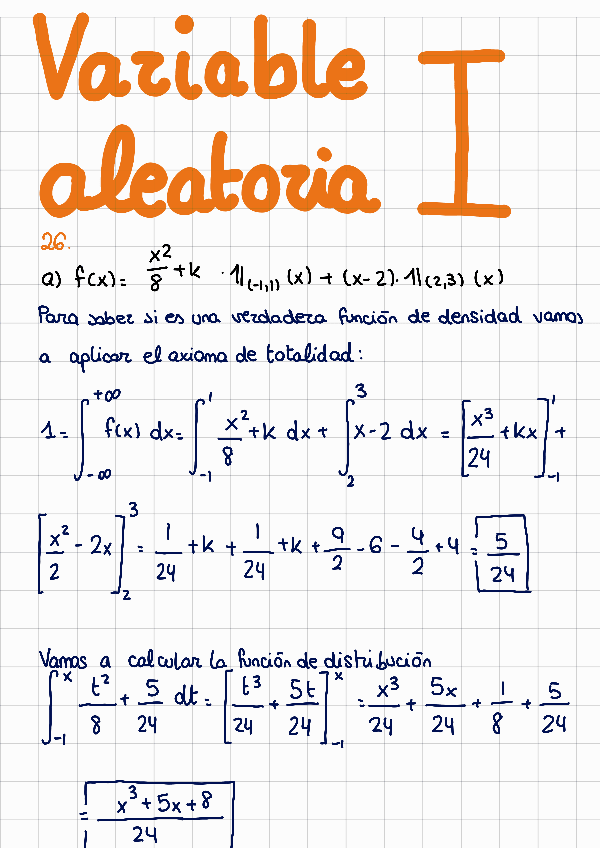 Variable I
aleatoria
26.
a) f(x) = x²/8 + k · 1l(-1,1) (x) + (x-2) · 1l(2,3) (x)
Para saber si es una verdadera función de densidad vamos
a aplicar el axioma de totalidad:
1 = ∫_{-∞}^{+∞} f(x) dx = ∫_{-1}^{1} x²/8 + k dx + ∫_{2}^{3} x-2 dx = [x³/24 + kx]_{-1}^{1} +
[x²/2 - 2x]_{2}^{3} = 1/24 + k + 1/24 + k + 9/2 - 6 - 4/2 + 4 = 5/24
Vamos a calcular la función de distribución
∫_{-1}^{x} t²/8 + 5/24 dt = [t³/24 + 5t/24]_{-1}^{x} = x³/24 + 5x/24 + 1/8 + 5/24
= x³+5x+8/24